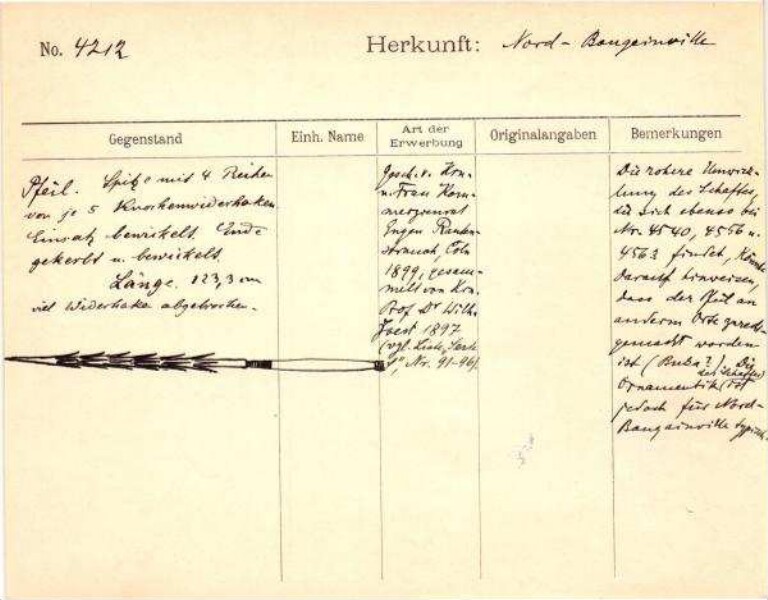 No. 4212
Herkunft: Nord-Bougainville
Gegenstand
Einh. Name
Art der Erwerbung
Originalangaben
Bemerkungen
Pfeil. Spitze mit 4 Reihen
von je 5 Knochenwiderhaken
Einsatz bewickelt. Ende
gekerbt u. bewickelt.
Länge. 123,3 cm
viel Widerhaken abgebrochen.
Gesch. v. Hrn.
u. Frau Kom-
merzienrat
Eugen Rauten-
strauch, Cöln
1899, gesam-
melt von Hrn.
Prof Dr Wilh.
Joest 1897
(vgl. Liste, Nr. 91-96).
Die rohere Umwick-
lung des Schaftes,
die sich ebenso bei
Nr. 4540, 4556 u.
4563 findet, könnte
darauf hinweisen,
dass der Pfeil an
anderm Orte zurecht-
gemacht worden
ist (Buka?). Die
Ornamentik (des Schaftes) ist
jedoch für Nord-
Bougainville typisch.